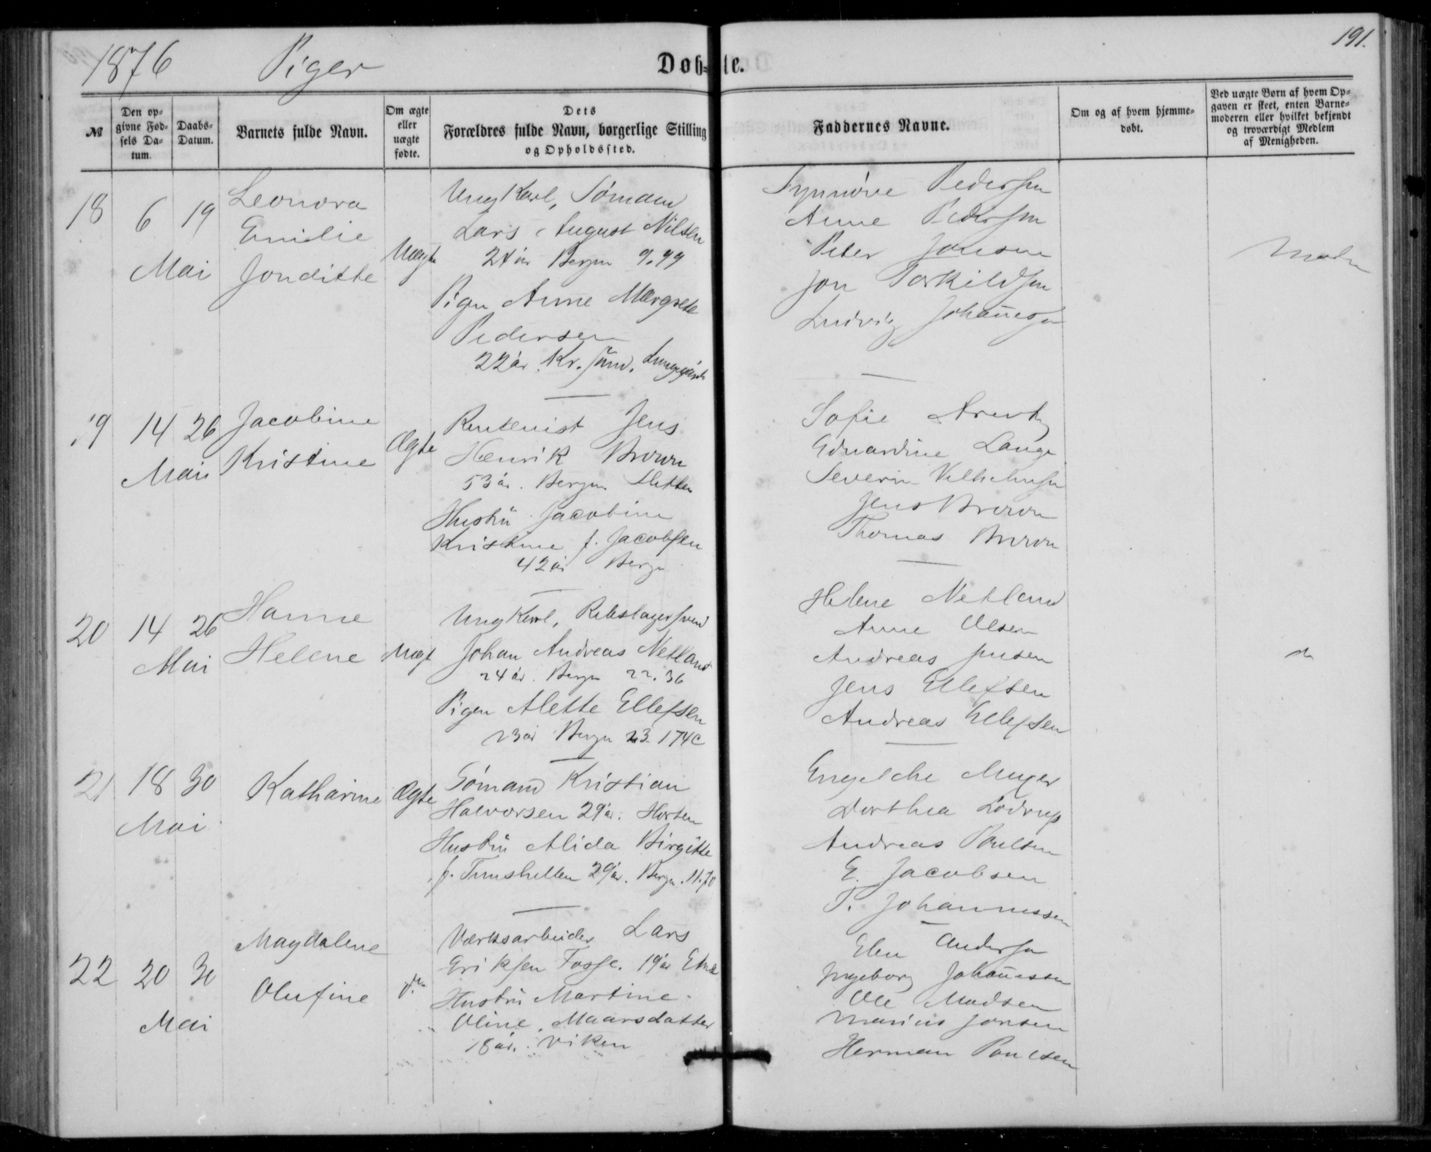 1876 Piger Døbte. 191.
№
Den opgivne Fødsels Datum.
Daabs-Datum.
Barnets fulde Navn.
Om ægte eller uægte fødte.
Dets Forældres fulde Navn, borgerlige Stilling og Opholdssted.
Faddernes Navne.
Om og af hvem hjemmedøbt.
Ved uægte Børn af hvem Opgaven er skeet, enten Barnemoderen eller hvilket bekjendt og troværdigt Medlem af Menigheden.
18 6 19 Mai
Leonora
Emilie
Jonditte
Uægte
Ungkarl, Sømand
Lars August Nilsen
24 år Bergen 9.99
Pigen Anne Margrete
Pedersen
22 år Kr. sund.
Synnøve Pedersen
Anne Pedersen
Peter Jonsen
Jon Torkildsen
Ludvig Johannesen
Modr
19 14 26 Mai
Jacobine
Kristine
Ægte
Rentenist Jens
Henrik Brown
53 år. Bergen
Hustru Jacobine
Kristine f. Jacobsen
42 år Bergn
Sofie
Eduardine Lange
Severin Vilhelmsen
Jens Brown
Thomas Brown
20 14 26 Mai
Hanne
Helene
Uægt
Ungkarl, Rebslagersvend
Johan Andreas Netland
24 år. Bergn 22.36
Pigen Alette Ellefsen
23 år Bergn 23 174c
Helene Netland
Anne Olsen
Andreas Jensen
Jens Ellefsen
Andreas Ellefsen
21 18 30 Mai
Katharine
Ægte
Sømand Kristian
Halvorsen 29 år. Horten
Hustru Alida Birgitte
f. 29 år. Bergn. 11.70
Engelche Meyer
Dorthea Lødrup
Andreas Poulsen
E. Jacobsen
T. Johannessen
22 20 30 Mai
Magdalene
Olufine
do
Værksarbeider Lars
Eriksen Fosse. 19 år
Hustru Martine
Oline Maarsdatter
18 år. Viken
Elen Andersen
Ingeborg Johannessen
Ole Madsen
Marius Jonsen
Herman Poulsen